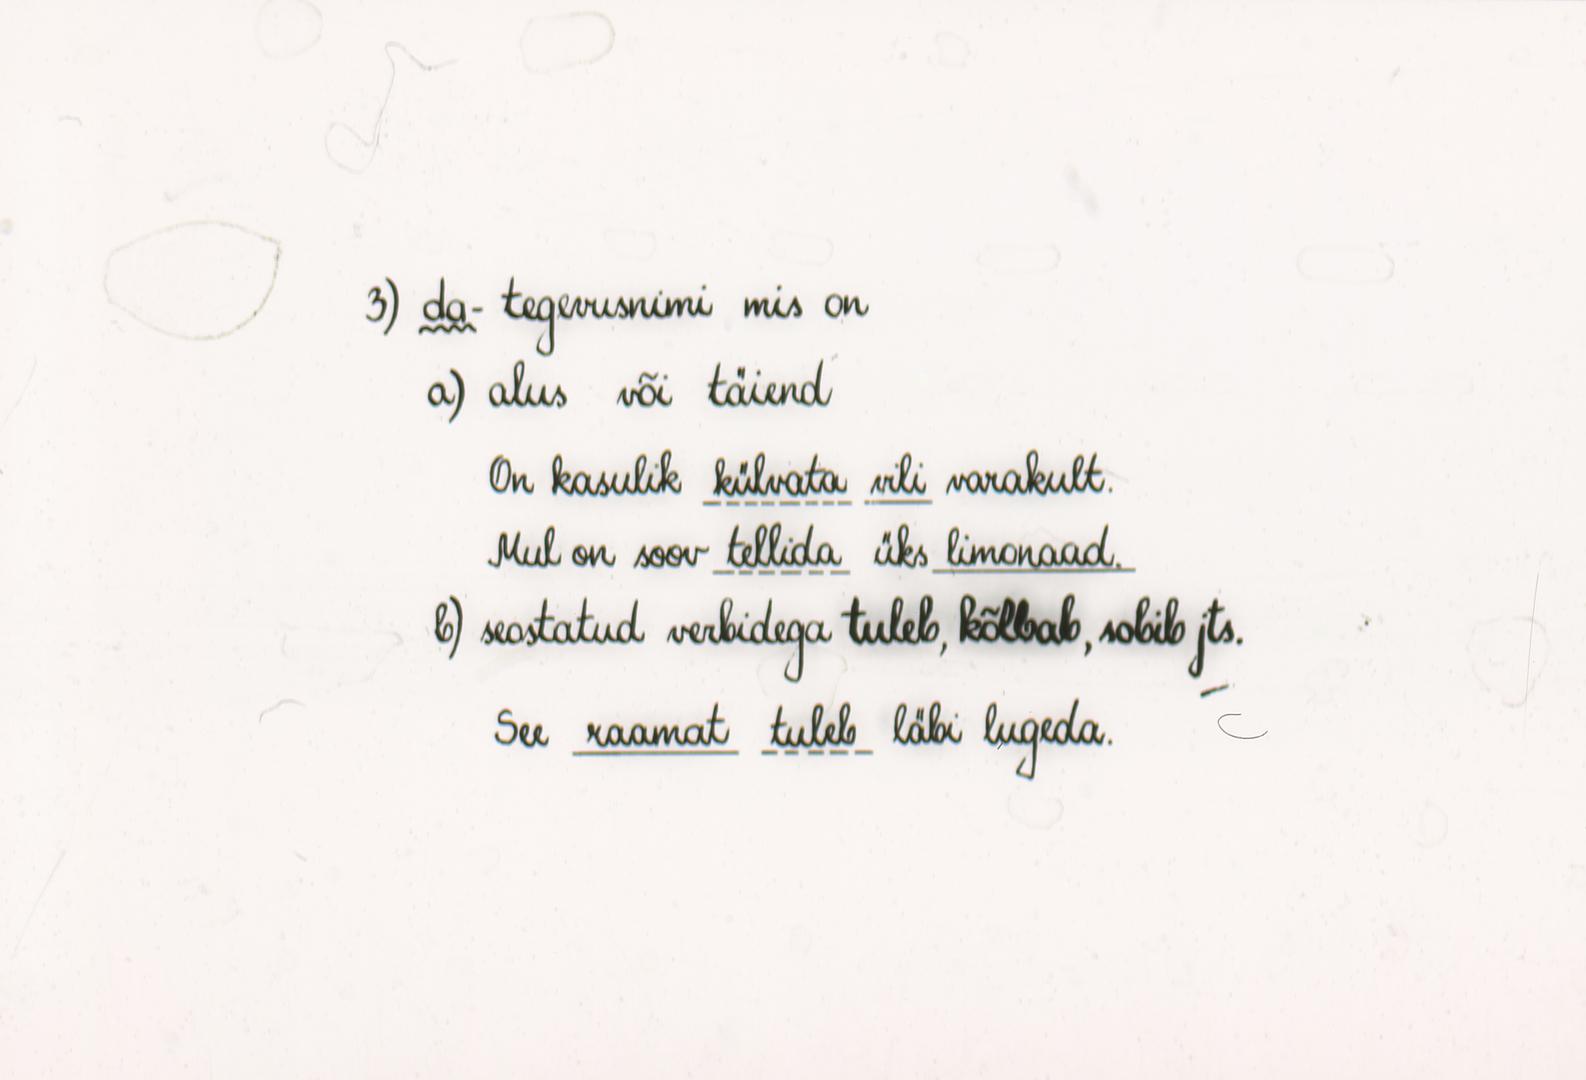 3) da- tegevusnimi mis on
a) alus või täiend
On kasulik külvata vili varakult.
Mul on soov tellida üks limonaad.
b) seostatud verbidega tuleb, kõlbab, sobib jts.
See raamat tuleb läbi lugeda.